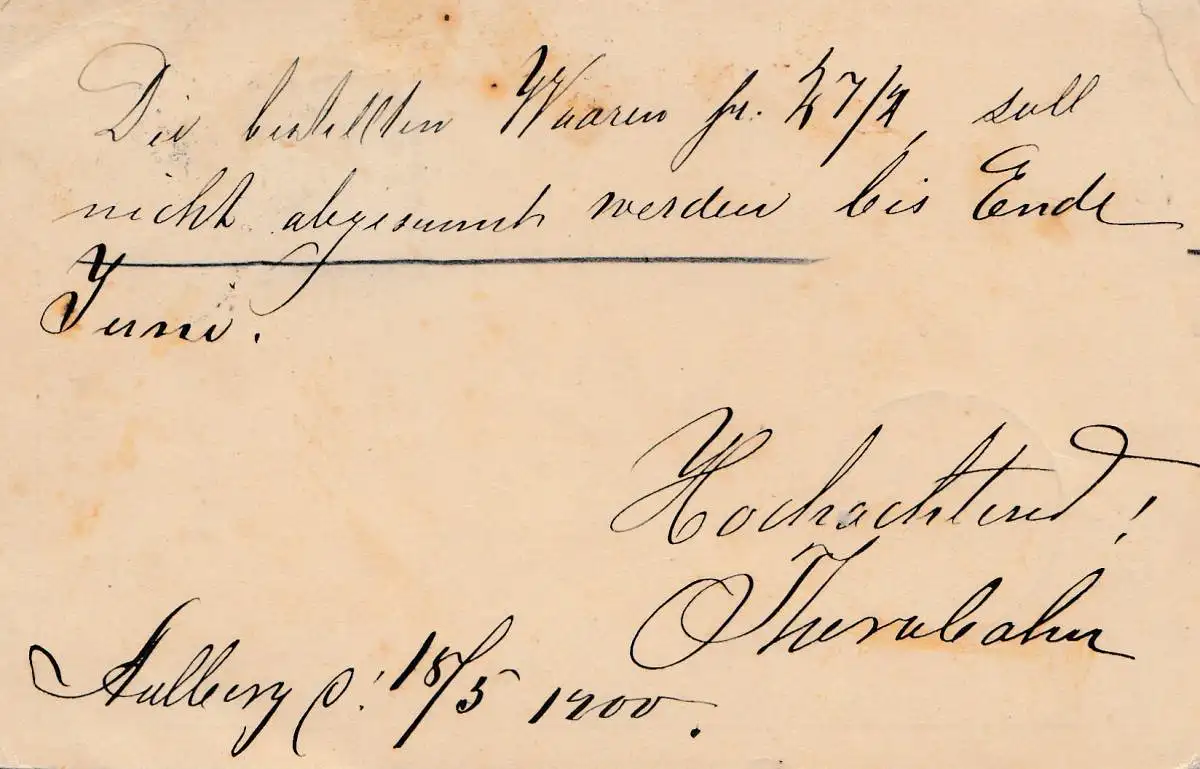 Die bestellten Waaren fr. 27/4, soll
nicht abgesannt werden bis Ende
Juni.
Hochachtend!
Aalborg d: 18/5 1900.